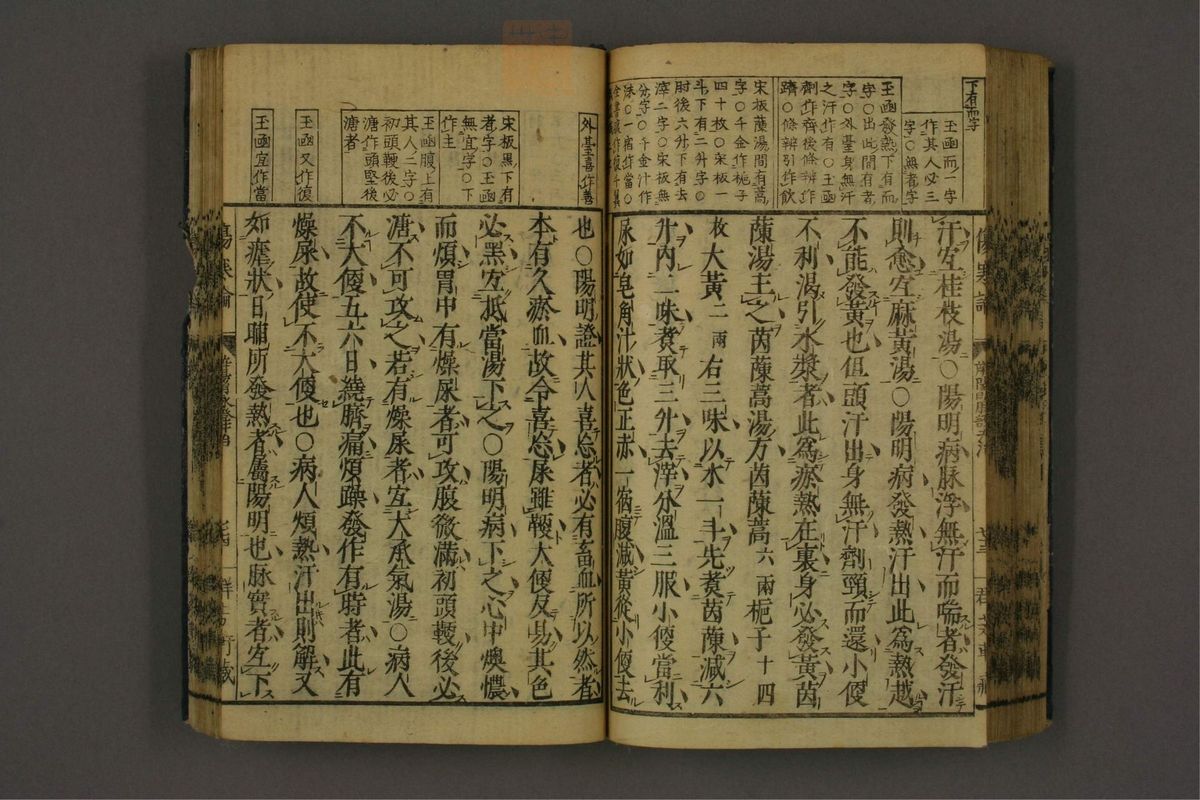 下有而字
玉函而一字
作其人必三
字〇無者字
玉函發熱下有而
字〇出此間有者
字〇外臺身無汗
之汗作有〇玉函
劑作齊後條辨作
躋〇條辨引作飲
宋板茵湯間有蒿
字〇千金作梔子
四十枚〇宋板一
斗下有二升字〇
肘後六升下有去
滓二字〇宋板無
分字〇千金汁作
沫〇一宿作當〇
汗宜桂枝湯〇陽明病脉浮無汗而喘者發汗
則愈宜麻黃湯〇陽明病發熱汗出此爲熱越
不能發黃也但頭汗出身無汗劑頸而還小便
不利渴引水漿者此爲瘀熱在裏身必發黃茵
蔯湯主之茵蔯蒿湯方茵蔯蒿六兩梔子十四
枚大黃二兩右三味以水一斗先煑茵蔯減六
升內二味煑取三升去滓分溫三服小便當利
尿如皂角汁狀色正赤一宿腹減黃從小便去
外臺喜作善
宋板黑下有
者字〇玉函
無宜字〇下
作主
玉函腹上有
其人二字〇
初頭鞕後必
溏作頭堅後
溏者
玉函又作復
玉函宜作當
也〇陽明證其人喜忘者必有畜血所以然者
本有久瘀血故令喜忘尿雖鞕大便反易其色
必黑宜抵當湯下之〇陽明病下之心中懊憹
而煩胃中有燥屎者可攻腹微滿初頭鞕後必
溏不可攻之若有燥屎者宜大承氣湯〇病人
不大便五六日繞臍痛煩躁發作有時者此有
燥屎故使不大便也〇病人煩熱汗出則解又
如瘧狀日晡所發熱者屬陽明也脉實者宜下
傷寒論